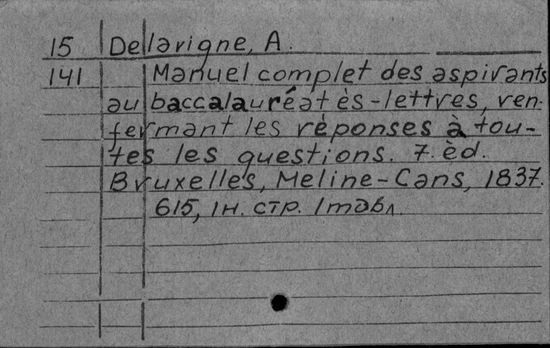 15 Delavigne, A.
141 Manuel complet des aspirants
au baccalauréat ès-lettres, ren-
fermant les réponses à tou-
tes les questions. 7. èd.
Bruxelles, Meline-Cans, 1837.
615, 1н. стр. 1табл.